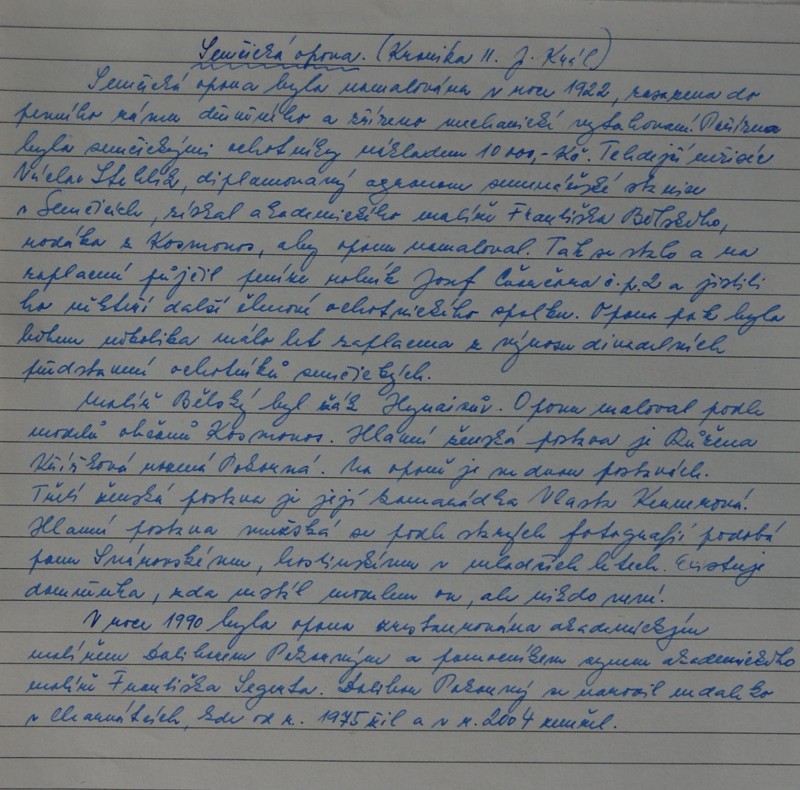 Semčická opona. (Kronika II. J. Král)
Semčická opona byla namalována v roce 1922, zasazena do
pevného rámu dřevěného a zřízeno mechanické vytahování. Pořízena
byla semčickými ochotníky nákladem 10 000,- Kč. Tehdejší režisér
Václav Stehlík, diplomovaný agronom semenářské stanice
v Semčicích, získal akademického malíře Františka Bělského,
rodáka z Kosmonos, aby oponu namaloval. Tak se stalo a na
zaplacení půjčil peníze rolník Josef č.p. 2 a jistili
ho někteří další členové ochotnického spolku. Opona pak byla
během několika málo let zaplacena z výnosu divadelních
představení ochotníků semčických.
Malíř Bělský byl žák Hynaisův. Oponu maloval podle
modelů občanů Kosmonos. Hlavní ženská postava je Růžena
Křížková provdaná Pokorná. Na oponě je ve dvou postavách.
Třetí ženská postava je její kamarádka Vlasta
Hlavní postava mužská se podle starých fotografií podobá
panu hostinskému v mladších letech. Existuje
domněnka, zda nestál modelem on, ale nikdo neví.
V roce 1990 byla opona zrestaurována akademickým
malířem Daliborem Pokorným a pomocníkem synem akademického
malíře Františka Segerta. Dalibor Pokorný se narodil nedaleko
v Charvátcích, kde od r. 1975 žil a v r. 2004 zemřel.